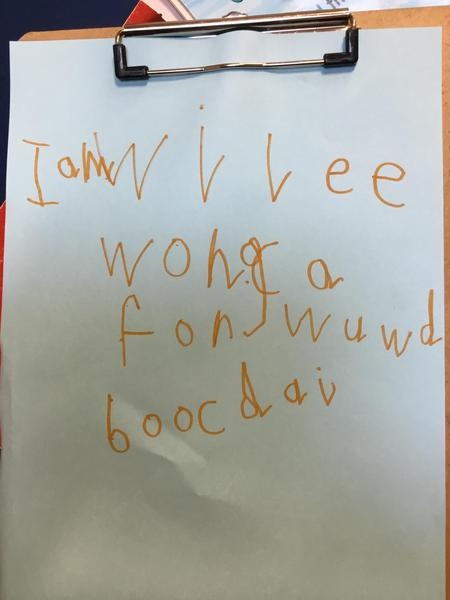 I am Wilee
wong a
fon wuwd
booc dai